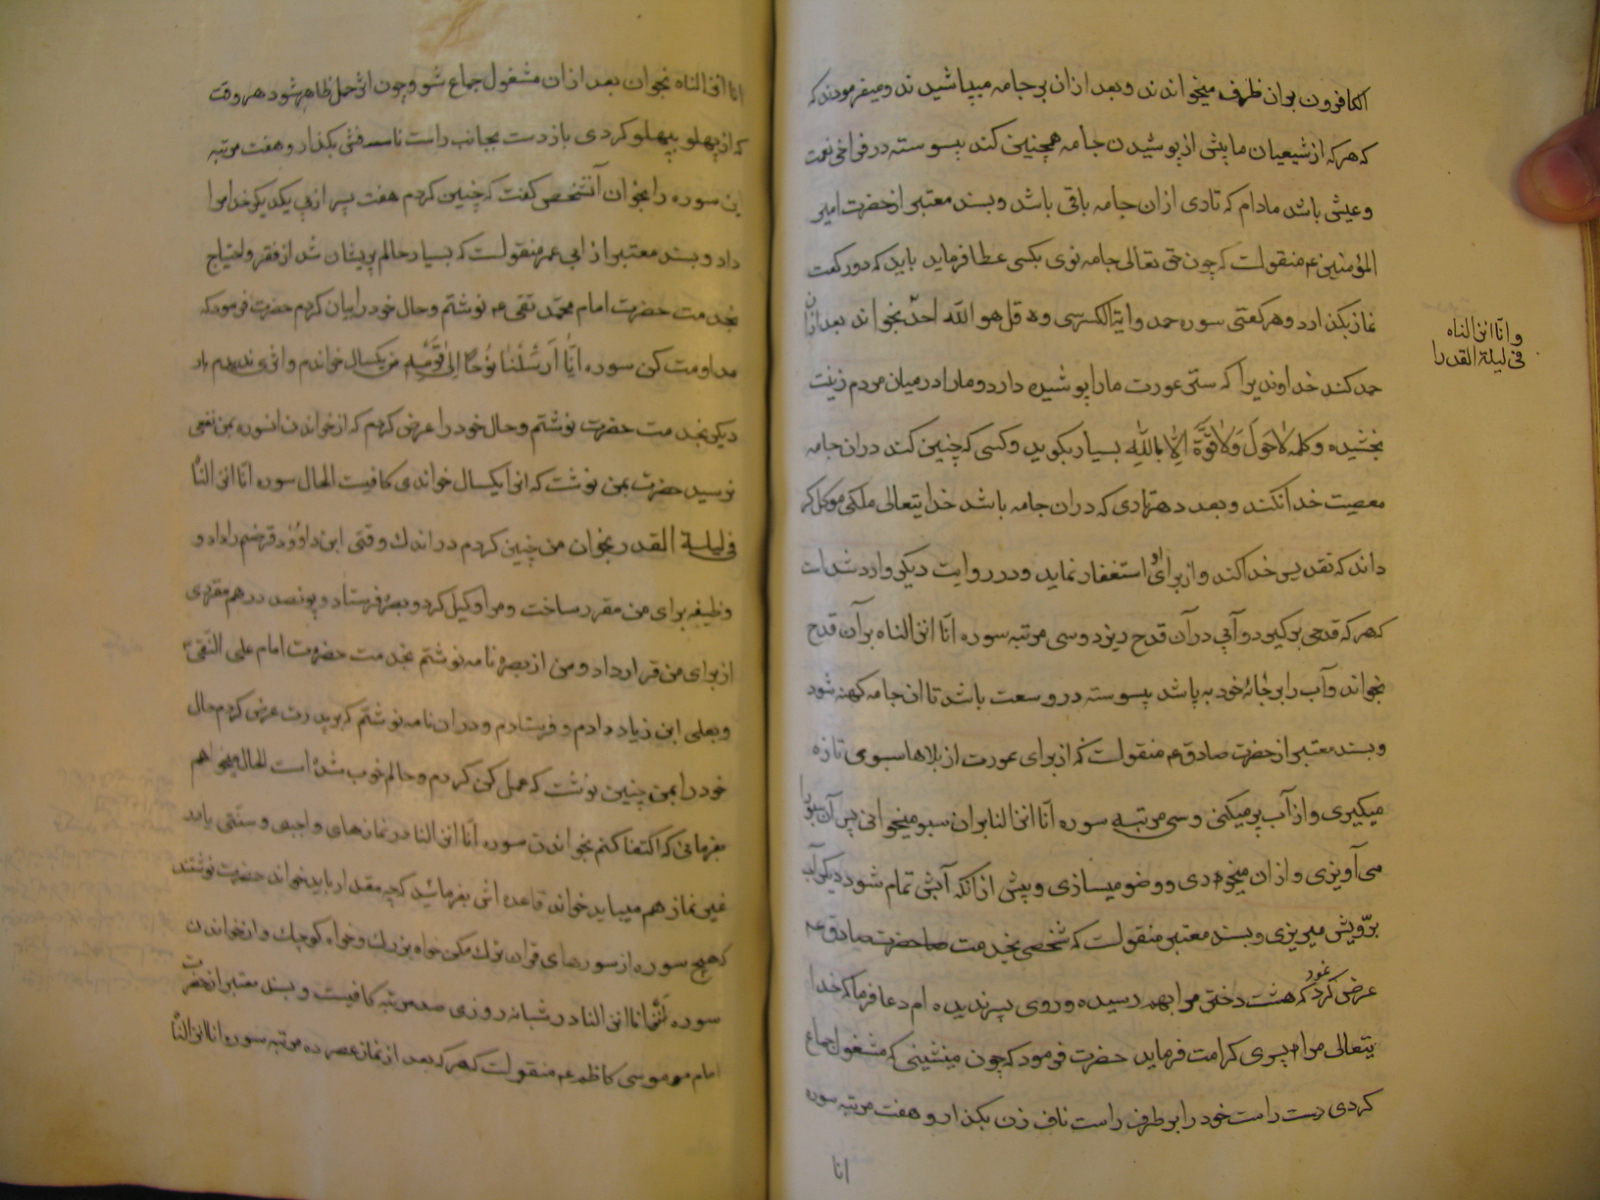 الکافرون بران ظرف میخواندند و بعد ازان بر جامه میپاشیدند و میفرمودند که
که هر که از شیعیان ما پیش از پوشیدن جامه همچنین کند پیوسته در فراخی نعمت
و عیش باشد مادام که تاری ازان جامه باقی باشد و بسند معتبر از حضرت امیر
المؤمنین ع منقولست که چون حق تعالی جامه نوی بکسی عطا فرماید باید که دو رکعت
نماز بکذارد و هر رکعتی سوره حمد و ایة الکرسی و قل هو الله احد بخواند بعد ازان
حمد کند خداوندیرا که ستر عورت مارا پوشیده دارد و مارا در میان مردم زینت
بخشیده و کلمه لا حول ولا قوة الا بالله بسیار بکوید و کسی که چنین کند دران جامه
معصیت خدا نکند و بعدد هر تاری که دران جامه باشد خدایتعالی ملکی موکل کر
داند که تقدیس خدا کند و از برای او استغفار نماید و در روایت دیکر وارد شده است
که هر که قدحی برکیرد و آبی در آن قدح ریزد و سی مرتبه سوره انّا انزلناه بر آن قدح
بخواند و آب را بر جامهٔ خود بپاشد پیوسته در وسعت باشد تا ان جامه کهنه شود
و بسند معتبر از حضرت صادق ع منقولست که از برای عورت از بلاها سبوی تازه
میکیری و از آب پر میکنی و سی مرتبه سوره انّا انزلنا بران سبو میخوانی پس آن سبو را
می آویزی و ازان میخوری و وضو میسازی و پیش از انکه آبش تمام شود دیکر آب
برویش میریزی و بسند معتبر منقولست که شخصی بخدمت حضرت صادق ع
عرض نمود که هشت دختر مرا بهم رسیده و روی پسر ندیده ام دعا فرما که خدا
یتعالی مرا پسری کرامت فرماید حضرت فرمود که چون مینشینی که مشغول جماع
کردی دست راست خود را بر طرف راست ناف زن بکذار و هفت مرتبه سوره
انا
و انّا انزلناه
فی لیلة القدر را
انا انزلناه بخوان بعد ازان مشغول جماع شو و چون اثر حمل ظاهر شود هر وقت
که از پهلو بپهلو کردی باز دست بجانب راست نافش بکذار و هفت مرتبه
این سوره را بخوان آنشخص کفت که چنین کردم هفت پسر از پی یکدیکر خدا مرا
داد و بسند معتبر از ابی عمر منقولست که بسیار حالم پریشان شد از فقر و احتیاج
بخدمت حضرت امام محمد تقی ع نوشتم و حال خود را بیان کردم حضرت فرمود که
مداومت کن سوره انّا ارسلنا نوحا الی قومه من یکسال خواندم و اثری ندیدم بار
دیکر بخدمت حضرت نوشتم و حال خود را عرض کردم که از خواندن انسوره بمن نفعی
نرسید حضرت بمن نوشت که انرا یکسال خواندی کافیست الحال سوره انّا انزلناه
فی لیلة القدر بخوان من چنین کردم در اندک وقتی ابن داوٗد قرضم را داد و
وظیفه برای من مقرر ساخت و مرا وکیل کرد و بصره فرستاد و پونصد درهم مقرری
از برای من قرار داد و من از بصره نامه نوشتم بخدمت حضرت امام علی النقی
و بعلی ابن زیاد دادم و فرستادم و دران نامه نوشتم که بپدرت عرض کردم حال
خود را بمن چنین نوشت که عمل کن کردم و حالم خوب شده است الحال میخواهم
بفرمائی که اکتفا کنم بخواندن سوره انّا انزلنا در نمازهای واجبی و سنّتی یا در
غیر نماز هم میباید خواند قاعده اش بفرمائید که چه مقدار باید خواند حضرت نوشتند
که هیچ سوره از سورهای قران ترک مکن خواه بزرک و خواه کوچک و از خواندن
سوره انا انزلنا در شبانه روزی صد مرتبه کافیست و بسند معتبر از حضرت
امام موسی کاظم ع منقولست که هر که بعد از نماز عصر ده مرتبه سوره انا انزلناه